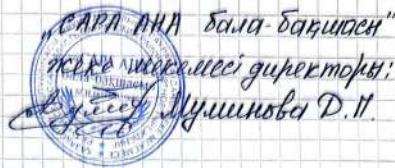 „САРА АНА бала-бақшасы"
жеке мекемесі директоры:
Муминова Д.П.